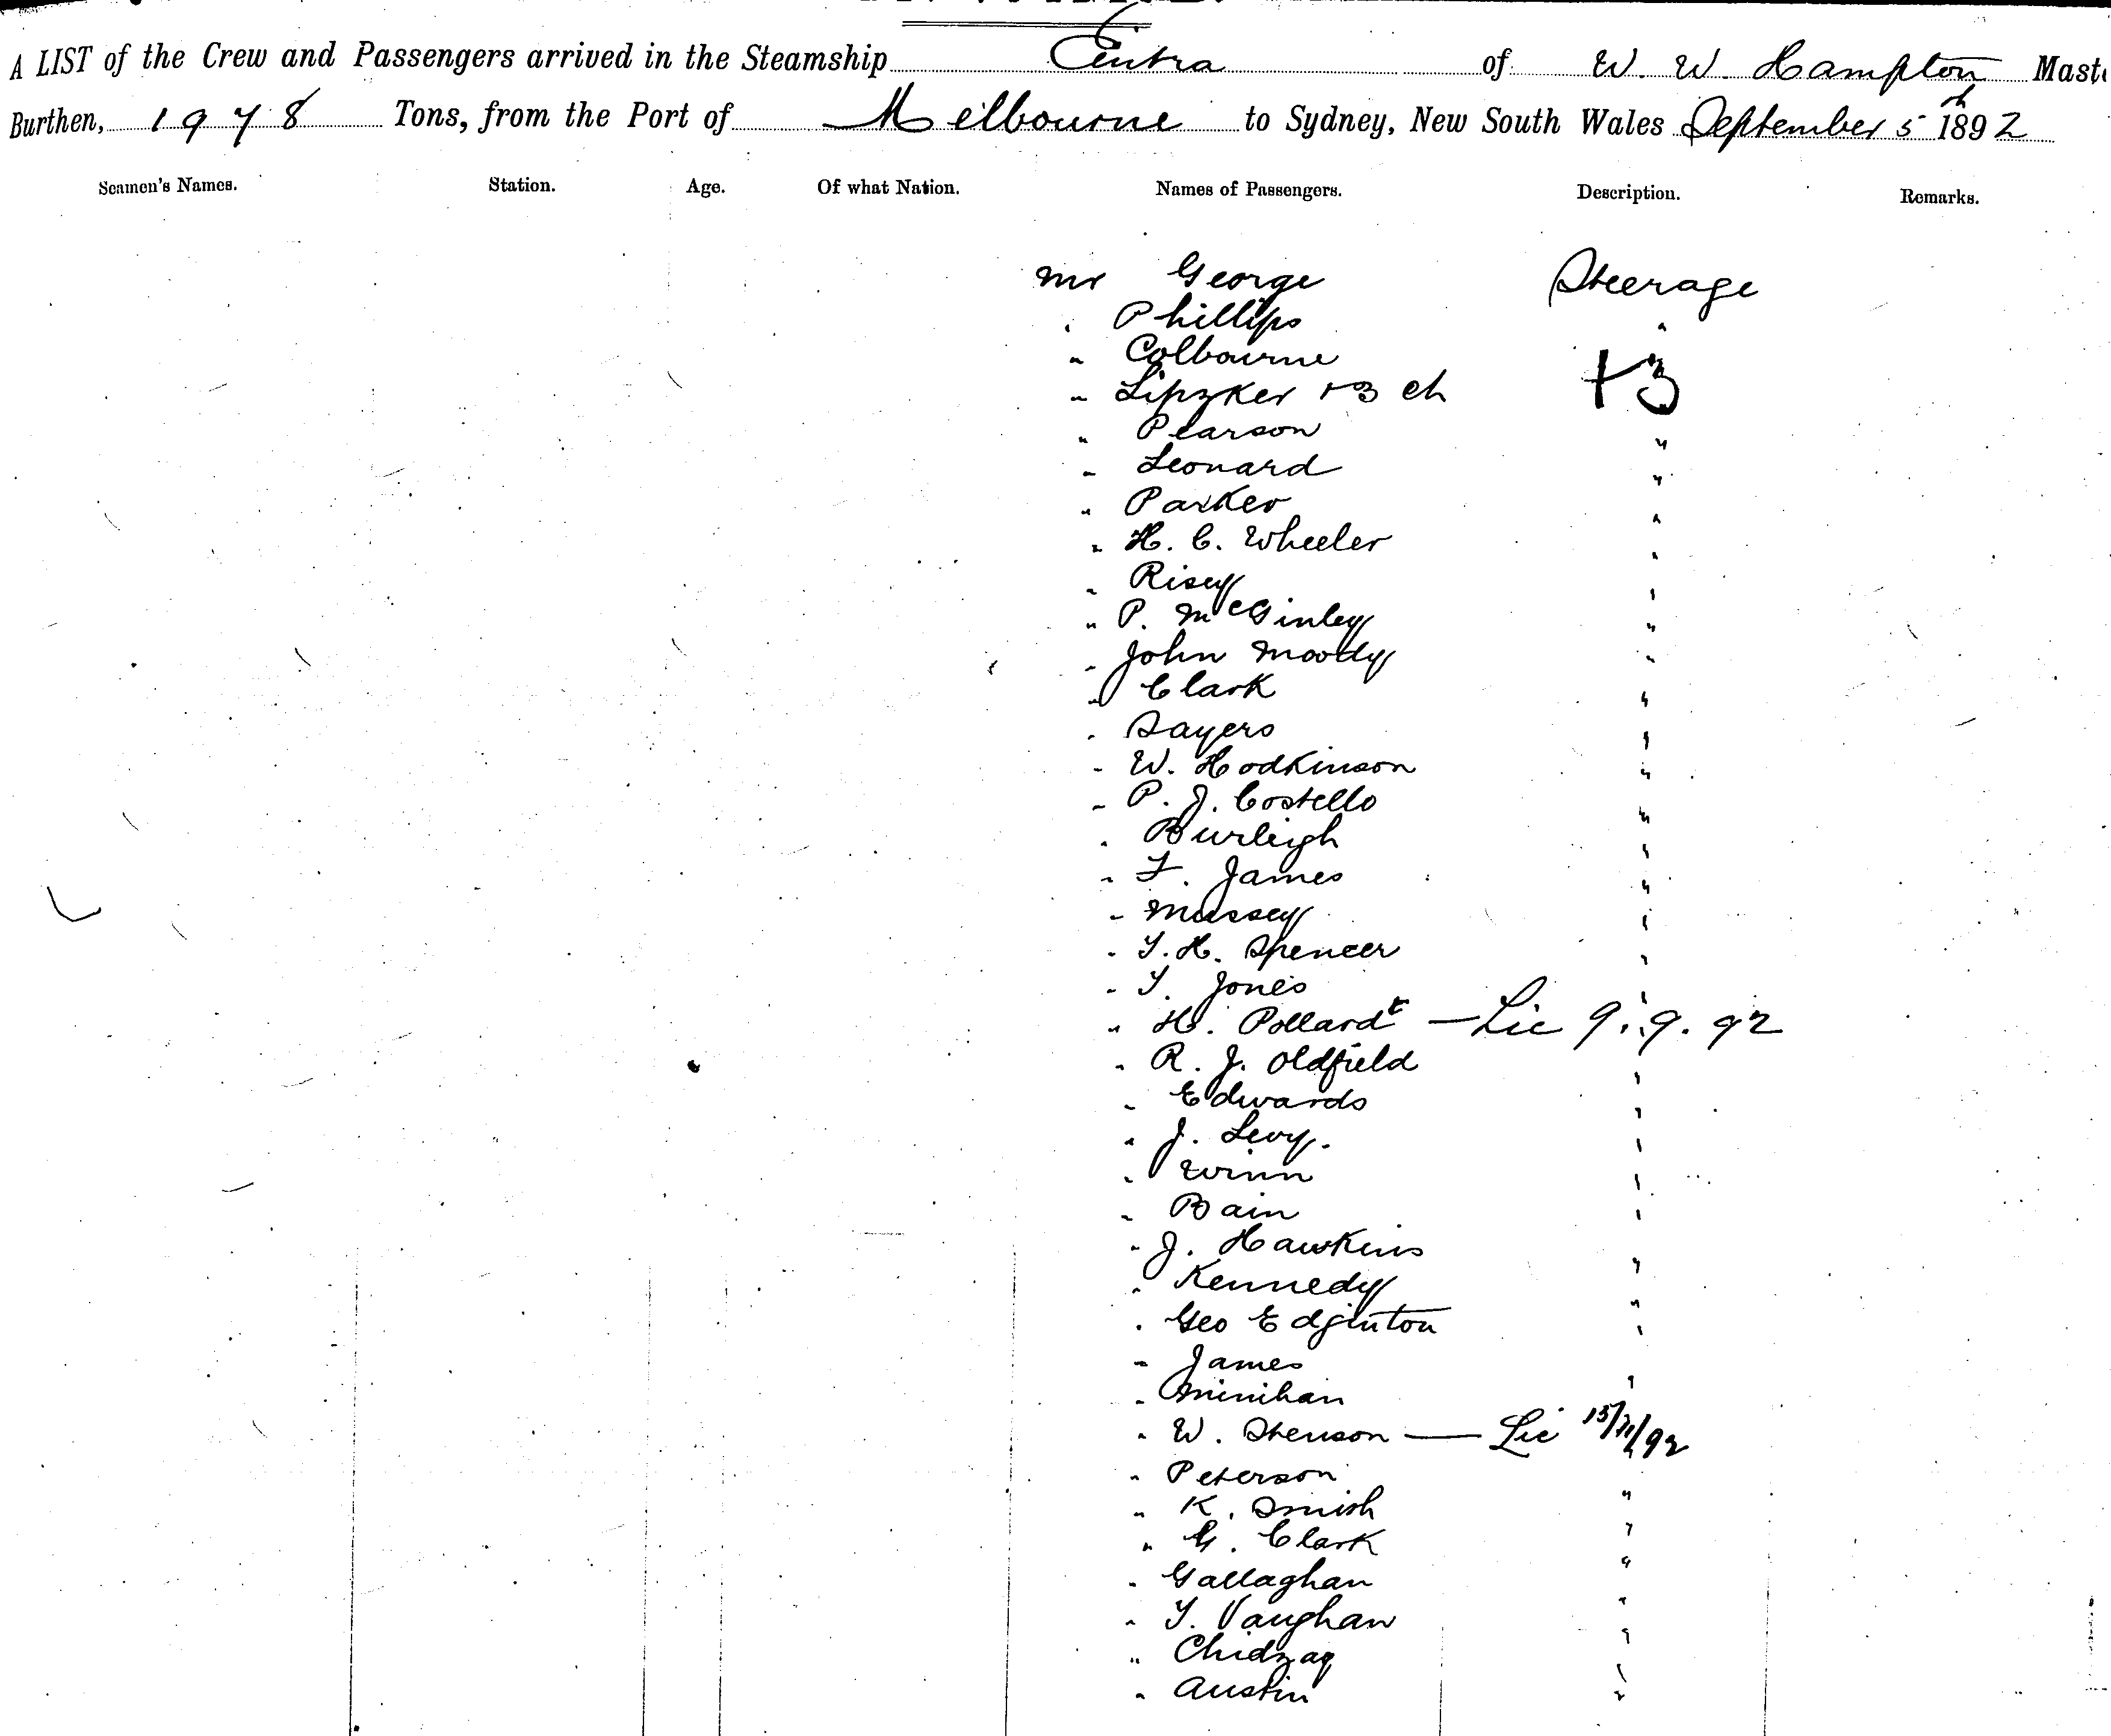 A LIST of the Crew and Passengers arrived in the Steamship Cintra of W. W. Hampton Maste
Burthen, 1978 Tons, from the Port of Melbourne to Sydney, New South Wales September 5th 1892
Seamen's Names. Station. Age. Of what Nation. Names of Passengers. Description. Remarks.
Mr George Steerage
" Phillips "
" Colbourne
" Lipzker + 3 ch +3
" Pearson "
" Leonard "
" Parker "
" H. C. Wheeler "
" Risey "
" P. McGinley "
" John Moody "
" Clark "
" Sayers "
" W. Hodkinson "
" P. J. Costello "
" Burleigh "
" F. James "
" Massey "
" T. H. Spencer "
" T. Jones "
" H. Pollard t — Lic 9.9.92
" R. J. Oldfield "
" Edwards "
" J. Levy. "
" Winn "
" Bain "
" J. Hawkins "
" Kennedy "
" Geo Edginton "
" James "
" Minihan
" W. Stenson — Lic /92
" Peterson "
" K. Smith "
" G. Clark "
" Gallaghan "
" T. Vaughan "
" Chidzay "
" Austin "